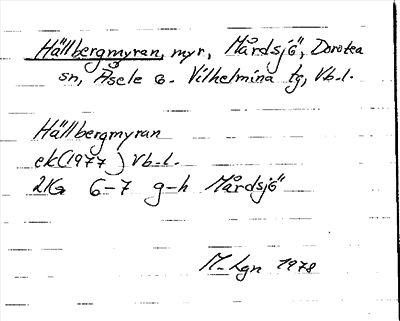 Hällbergmyran, myr, Mårdsjö, Dorotea
sn, Åsele o. Vilhelmina tg, Vb.l.
Hällbergmyran
ek(1977) Vb.l.
21G 6-7 g-h Mårdsjö
M-Lgn 1978